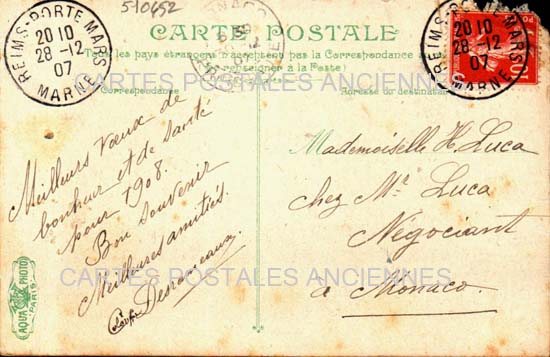 510652
CARTE POSTALE
Tous les pays étrangers n'acceptent pas la Correspondance au
(se renseigner à la Poste)
Correspondance
Adresse du destinataire
REIMS-PORTE MARS
20 10
28-12
07
MARNE
REIMS-PORTE MARS
20 10
28-12
07
MARNE
10
CARTES POSTALES ANCIENNES
Meilleurs vœux de
bonheur et de santé
pour 1908.
Bon souvenir
Meilleures amitiés.
Mademoiselle H. Luca
chez Mr Luca
Négociant
à Monaco.
CARTES POSTALES ANCIENNES
AQUA PHOTO
PARIS